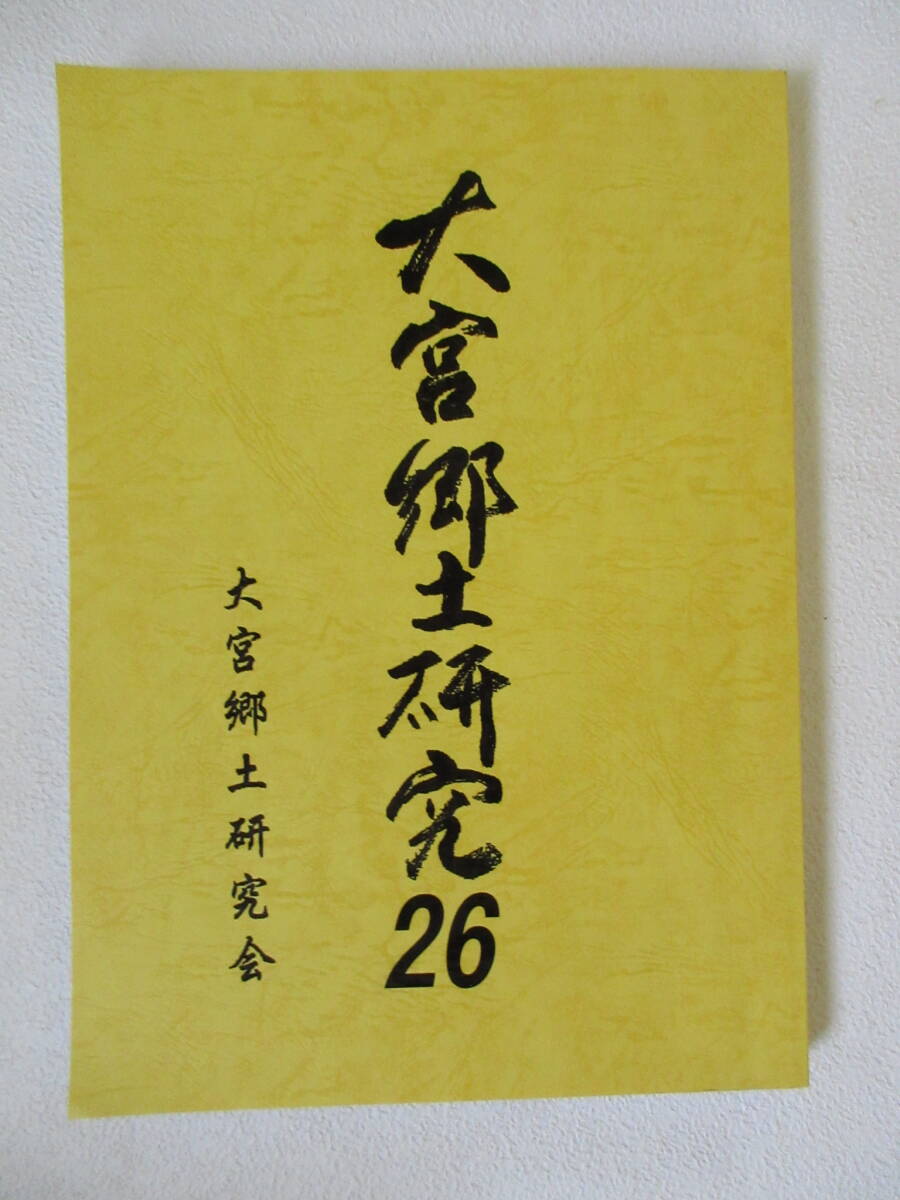 大宮郷土研究26
大宮郷土研究会